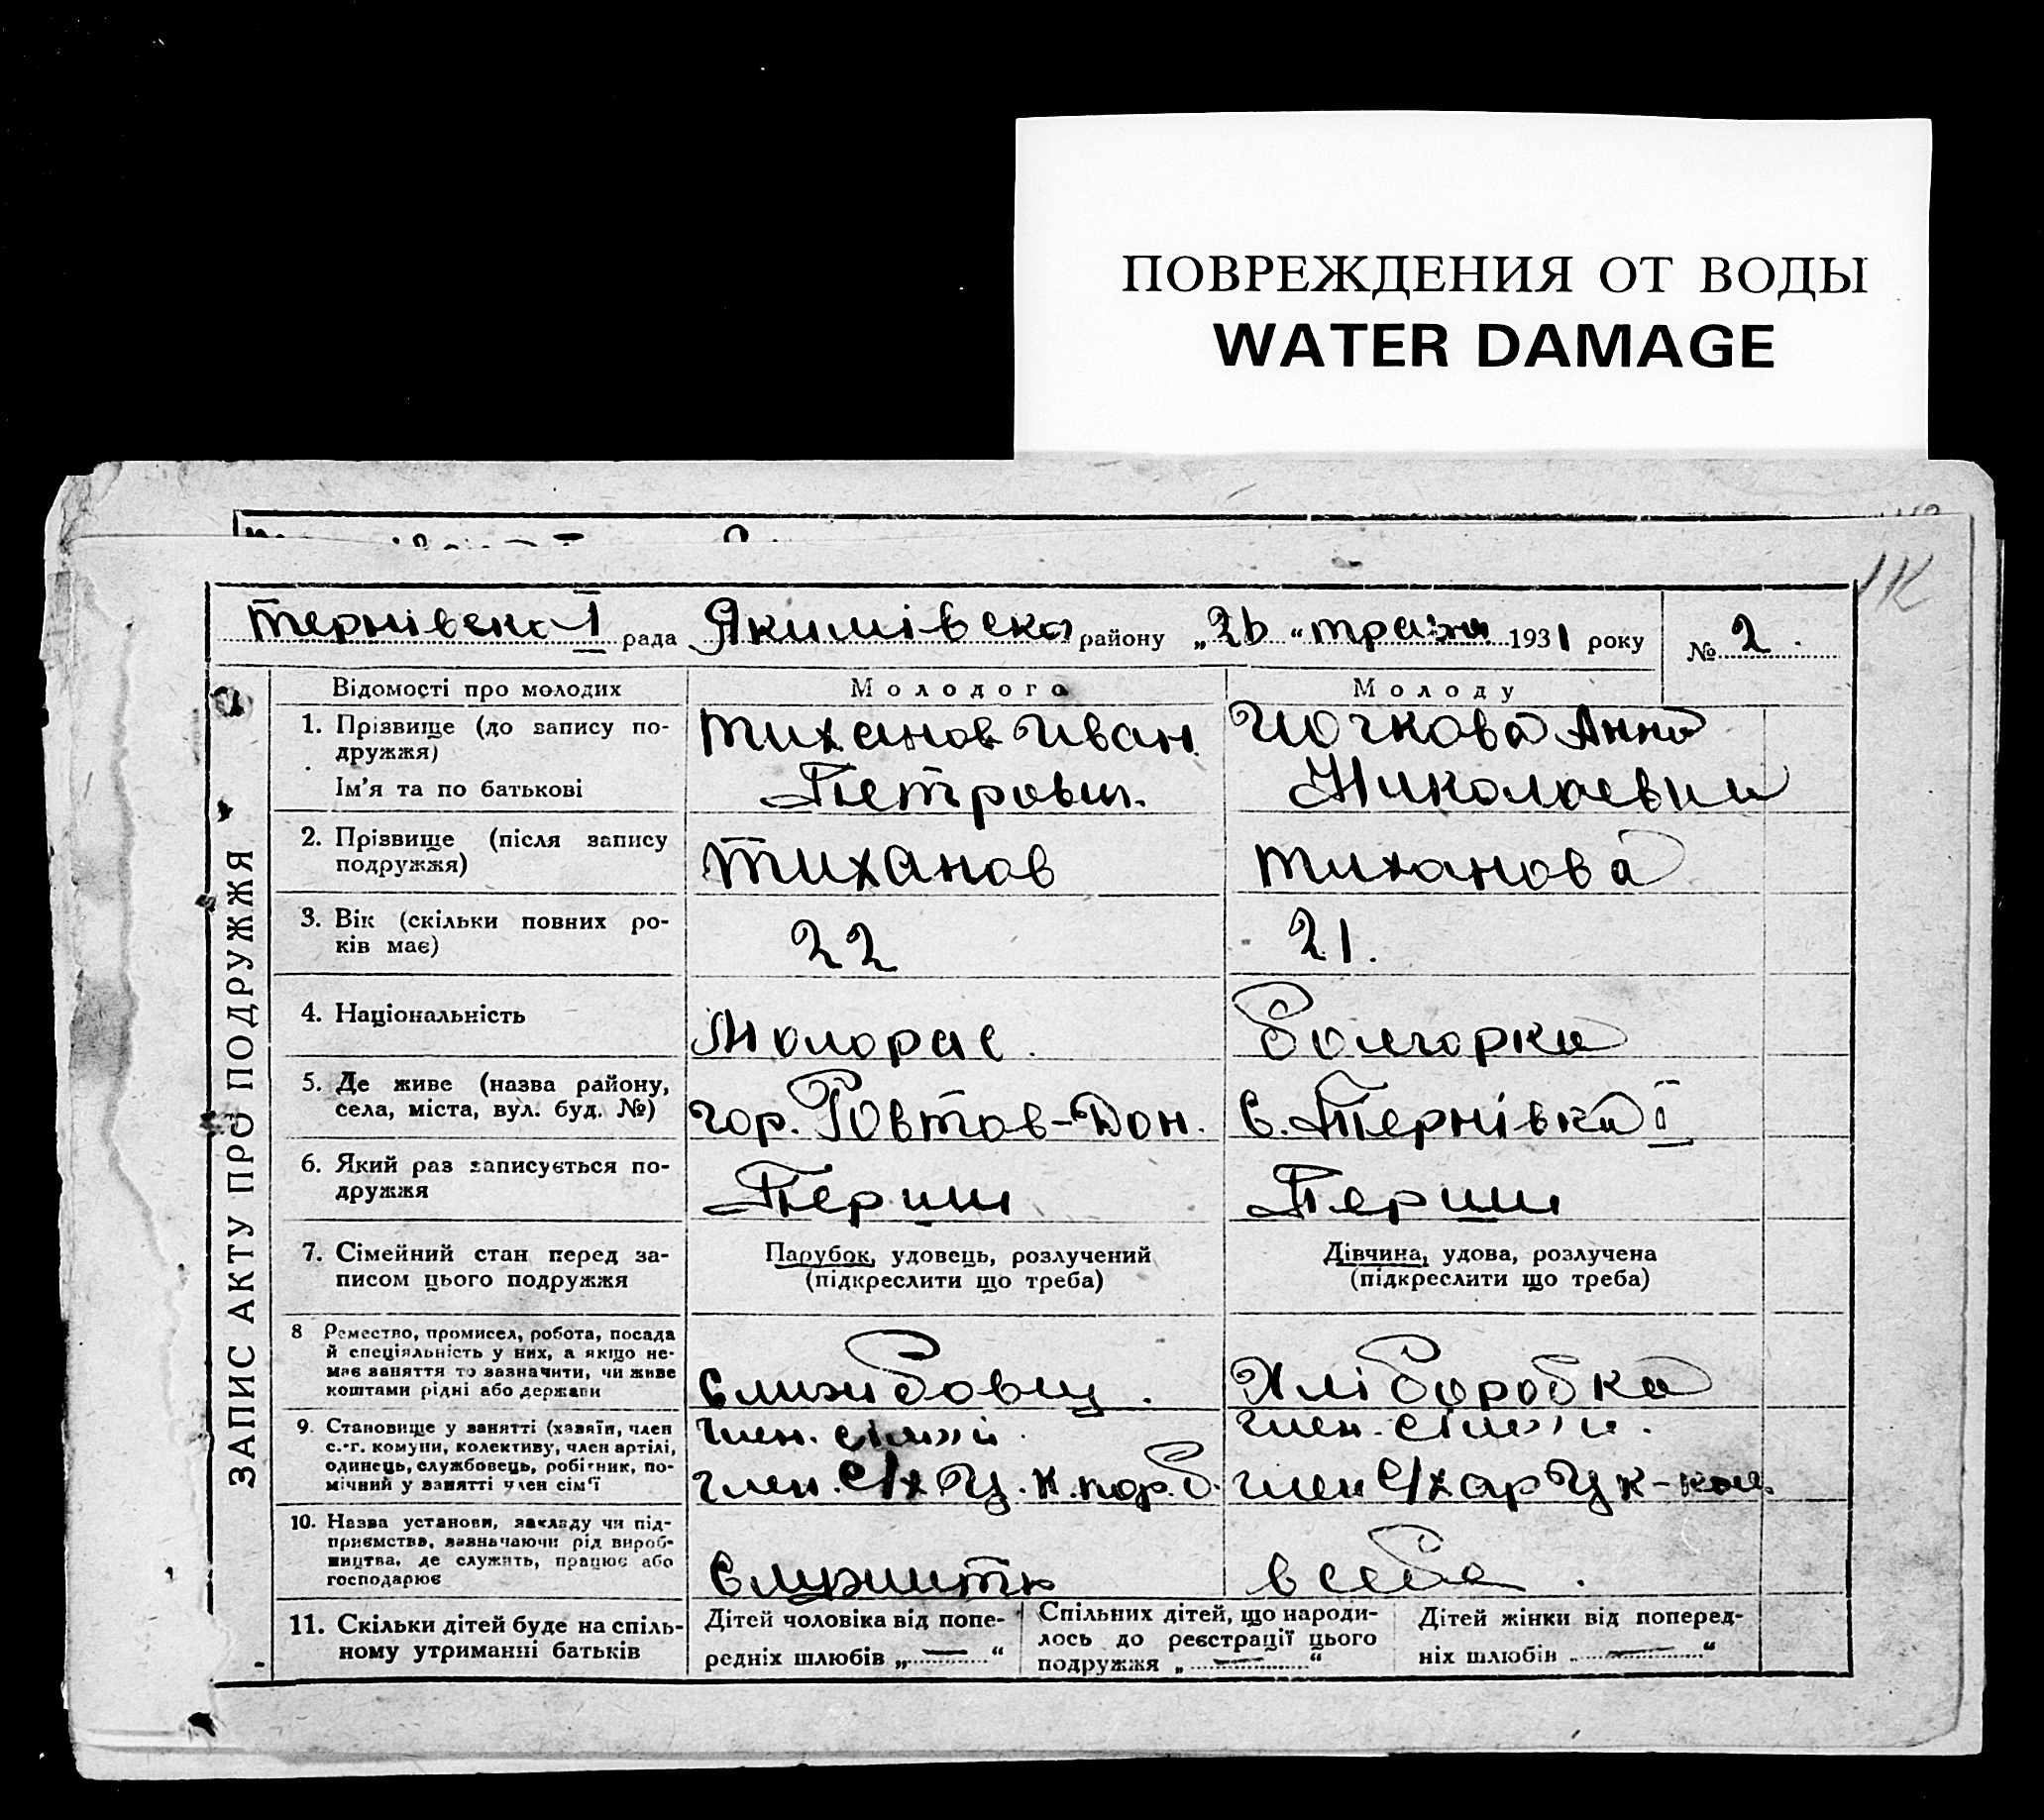 ПОВРЕЖДЕНИЯ ОТ ВОДЫ
WATER DAMAGE
1К
Тернівська I рада Якимівська району „26 “ травня 1931 року № 2.
ЗАПИС АКТУ ПРО ПОДРУЖЖЯ
Відомості про молодих Молодого Молоду
1. Прізвище (до запису по- Тиханов Иван Гючкова Анна
дружжя)
Ім'я та по батькові Петрович. Николаевна
2. Прізвище (після запису Тиханов Тиханова
подружжя)
3. Вік (скільки повних ро- 22 21.
ків має)
4. Національність Молорас. Болгарка
5. Де живе (назва району, гор. Ростов-Дон. с. Тернівка I
села, міста, вул. буд. №)
6. Який раз записується по- Перши Перши
дружжя
7. Сімейний стан перед за- Парубок, удовець, розлучений Дівчина, удова, розлучена
писом цього подружжя (підкреслити що треба) (підкреслити що треба)
8 Ремество, промисел, робота, посада
й спеціяльність у них, а якщо не-
має заняття то зазначити, чи живе
коштами рідні або держави Служибовц. Хліборобка
9. Становище у занятті (хазяїн, член член. сімьи. член. сімьи.
с.-г. комуни, колективу, член артілі,
одинець, службовець, робітник, по- член. с/х член с/х
мічний у занятті член сім'ї
10. Назва установи, закладу чи під-
приємства, зазначаючи рід вироб-
ництва, де служить, працює або
господарює в себе.
11. Скільки дітей буде на спіль- Дітей чоловіка від попе- Спільних дітей, що народи- Дітей жінки від поперед-
ному утриманні батьків редніх шлюбів „ — “ лось до реєстрації цього ніх шлюбів „ — “
подружжя „ — “